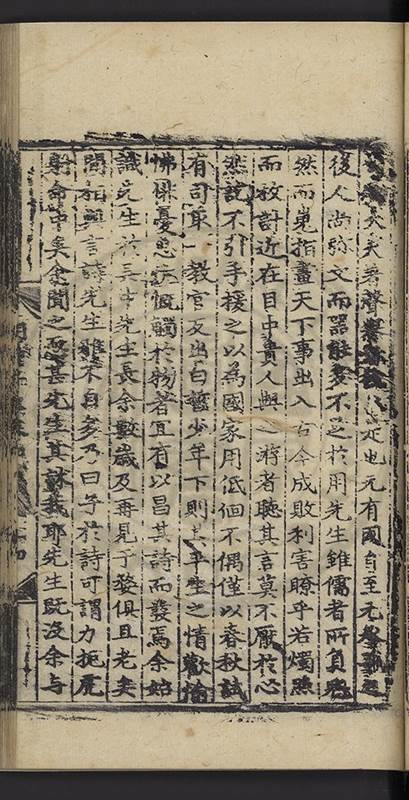 矣夫著聲走也元有國自至元
後人尚弥文而器能多不足於用先生雖儒者所負魁
然而嵬指畫天下事出入古今成敗利害瞭乎若燭照
而放討近在目中貴人與之游者聽其言莫不厭於心
然設不引手援之以為國家用低徊不偶僅以春秋試
有司軍一教官反出白皙少年下則其平生之情歡愉
怫憂思慷慨觸於物者宜有以昌其詩而發焉余始
識先生於吳中先生長余數歲及再見于婺俱且老矣
間相與言詩先生雖不自多乃曰予於詩可謂力扼虎
射命中矣余聞之甚先生其我耶先生既沒余與